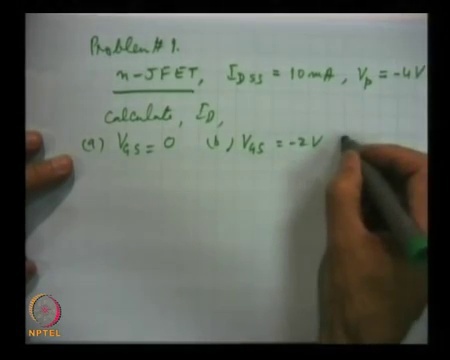 Problem # 1.
n-JFET, IDSS = 10 mA, Vp = -4V
Calculate, ID,
(a) VGS = 0 (b) VGS = -2V
NPTEL